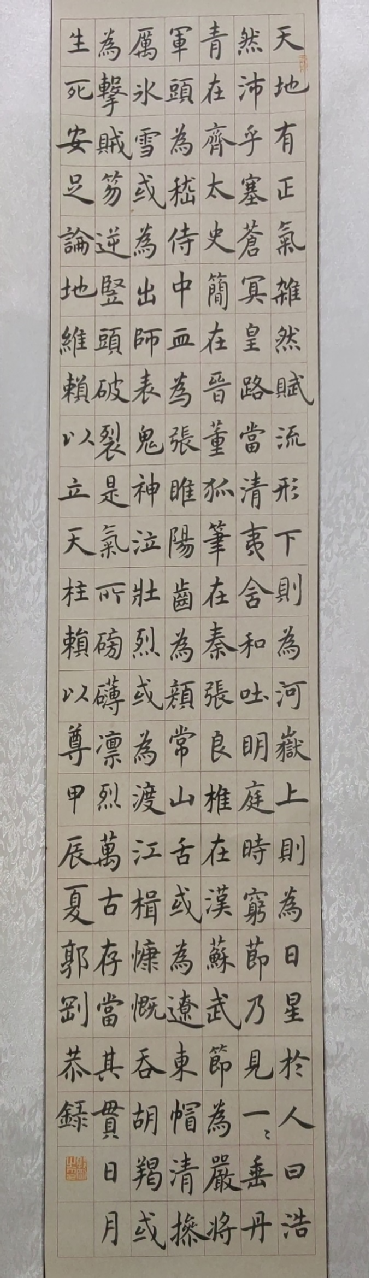 天地有正氣雜然賦流形下則為河嶽上則為日星於人曰浩
然沛乎塞蒼冥皇路當清夷含和吐明庭時窮節乃見一〻垂丹
青在齊太史簡在晉董狐筆在秦張良椎在漢蘇武節為嚴將
軍頭為嵇侍中血為張睢陽齒為顏常山舌或為遼東帽清操
厲氷雪或為出師表鬼神泣壯烈或為渡江楫慷慨吞胡羯或
為擊賊笏逆豎頭破裂是氣所磅礴凛烈萬古存當其貫日月
生死安足論地維賴以立天柱賴以尊甲辰夏郭恭錄